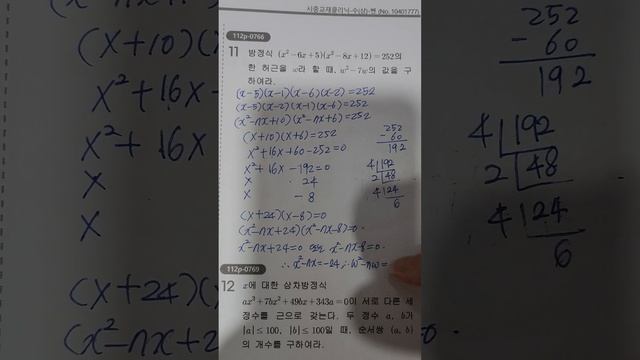 시중교재클리닉-수(상)-쎈 (No. 10401777)
112p-0766
11 방정식 (x²-6x+5)(x²-8x+12)=252의
한 허근을 w라 할 때, w²-7w의 값을 구
하여라.
(x-5)(x-1)(x-6)(x-2)=252
(x-5)(x-2)(x-1)(x-6)=252
(x²-7x+10)(x²-7x+6)=252
(X+10)(X+6)=252
X²+16X+60-252=0
X²+16X-192=0
X 24
X -8
(X+24)(X-8)=0
(x²-7x+24)(x²-7x-8)=0
x²-7x+24=0 또는 x²-7x-8=0
∴ x²-7x=-24, ∴ w²-7w=
252
-60
192
4 192
2 48
4 24
6
112p-0769
12 x에 대한 삼차방정식
ax³+7bx²+49bx+343a=0이 서로 다른 세
정수를 근으로 갖는다. 두 정수 a, b가
|a|≤100, |b|≤100일 때, 순서쌍 (a, b)
의 개수를 구하여라.
(x+10)(
x²+16
x²+16x
x
x
(x+24)(
(x²-7x+2
252
-60
192
4 192
2 48
4 24
6